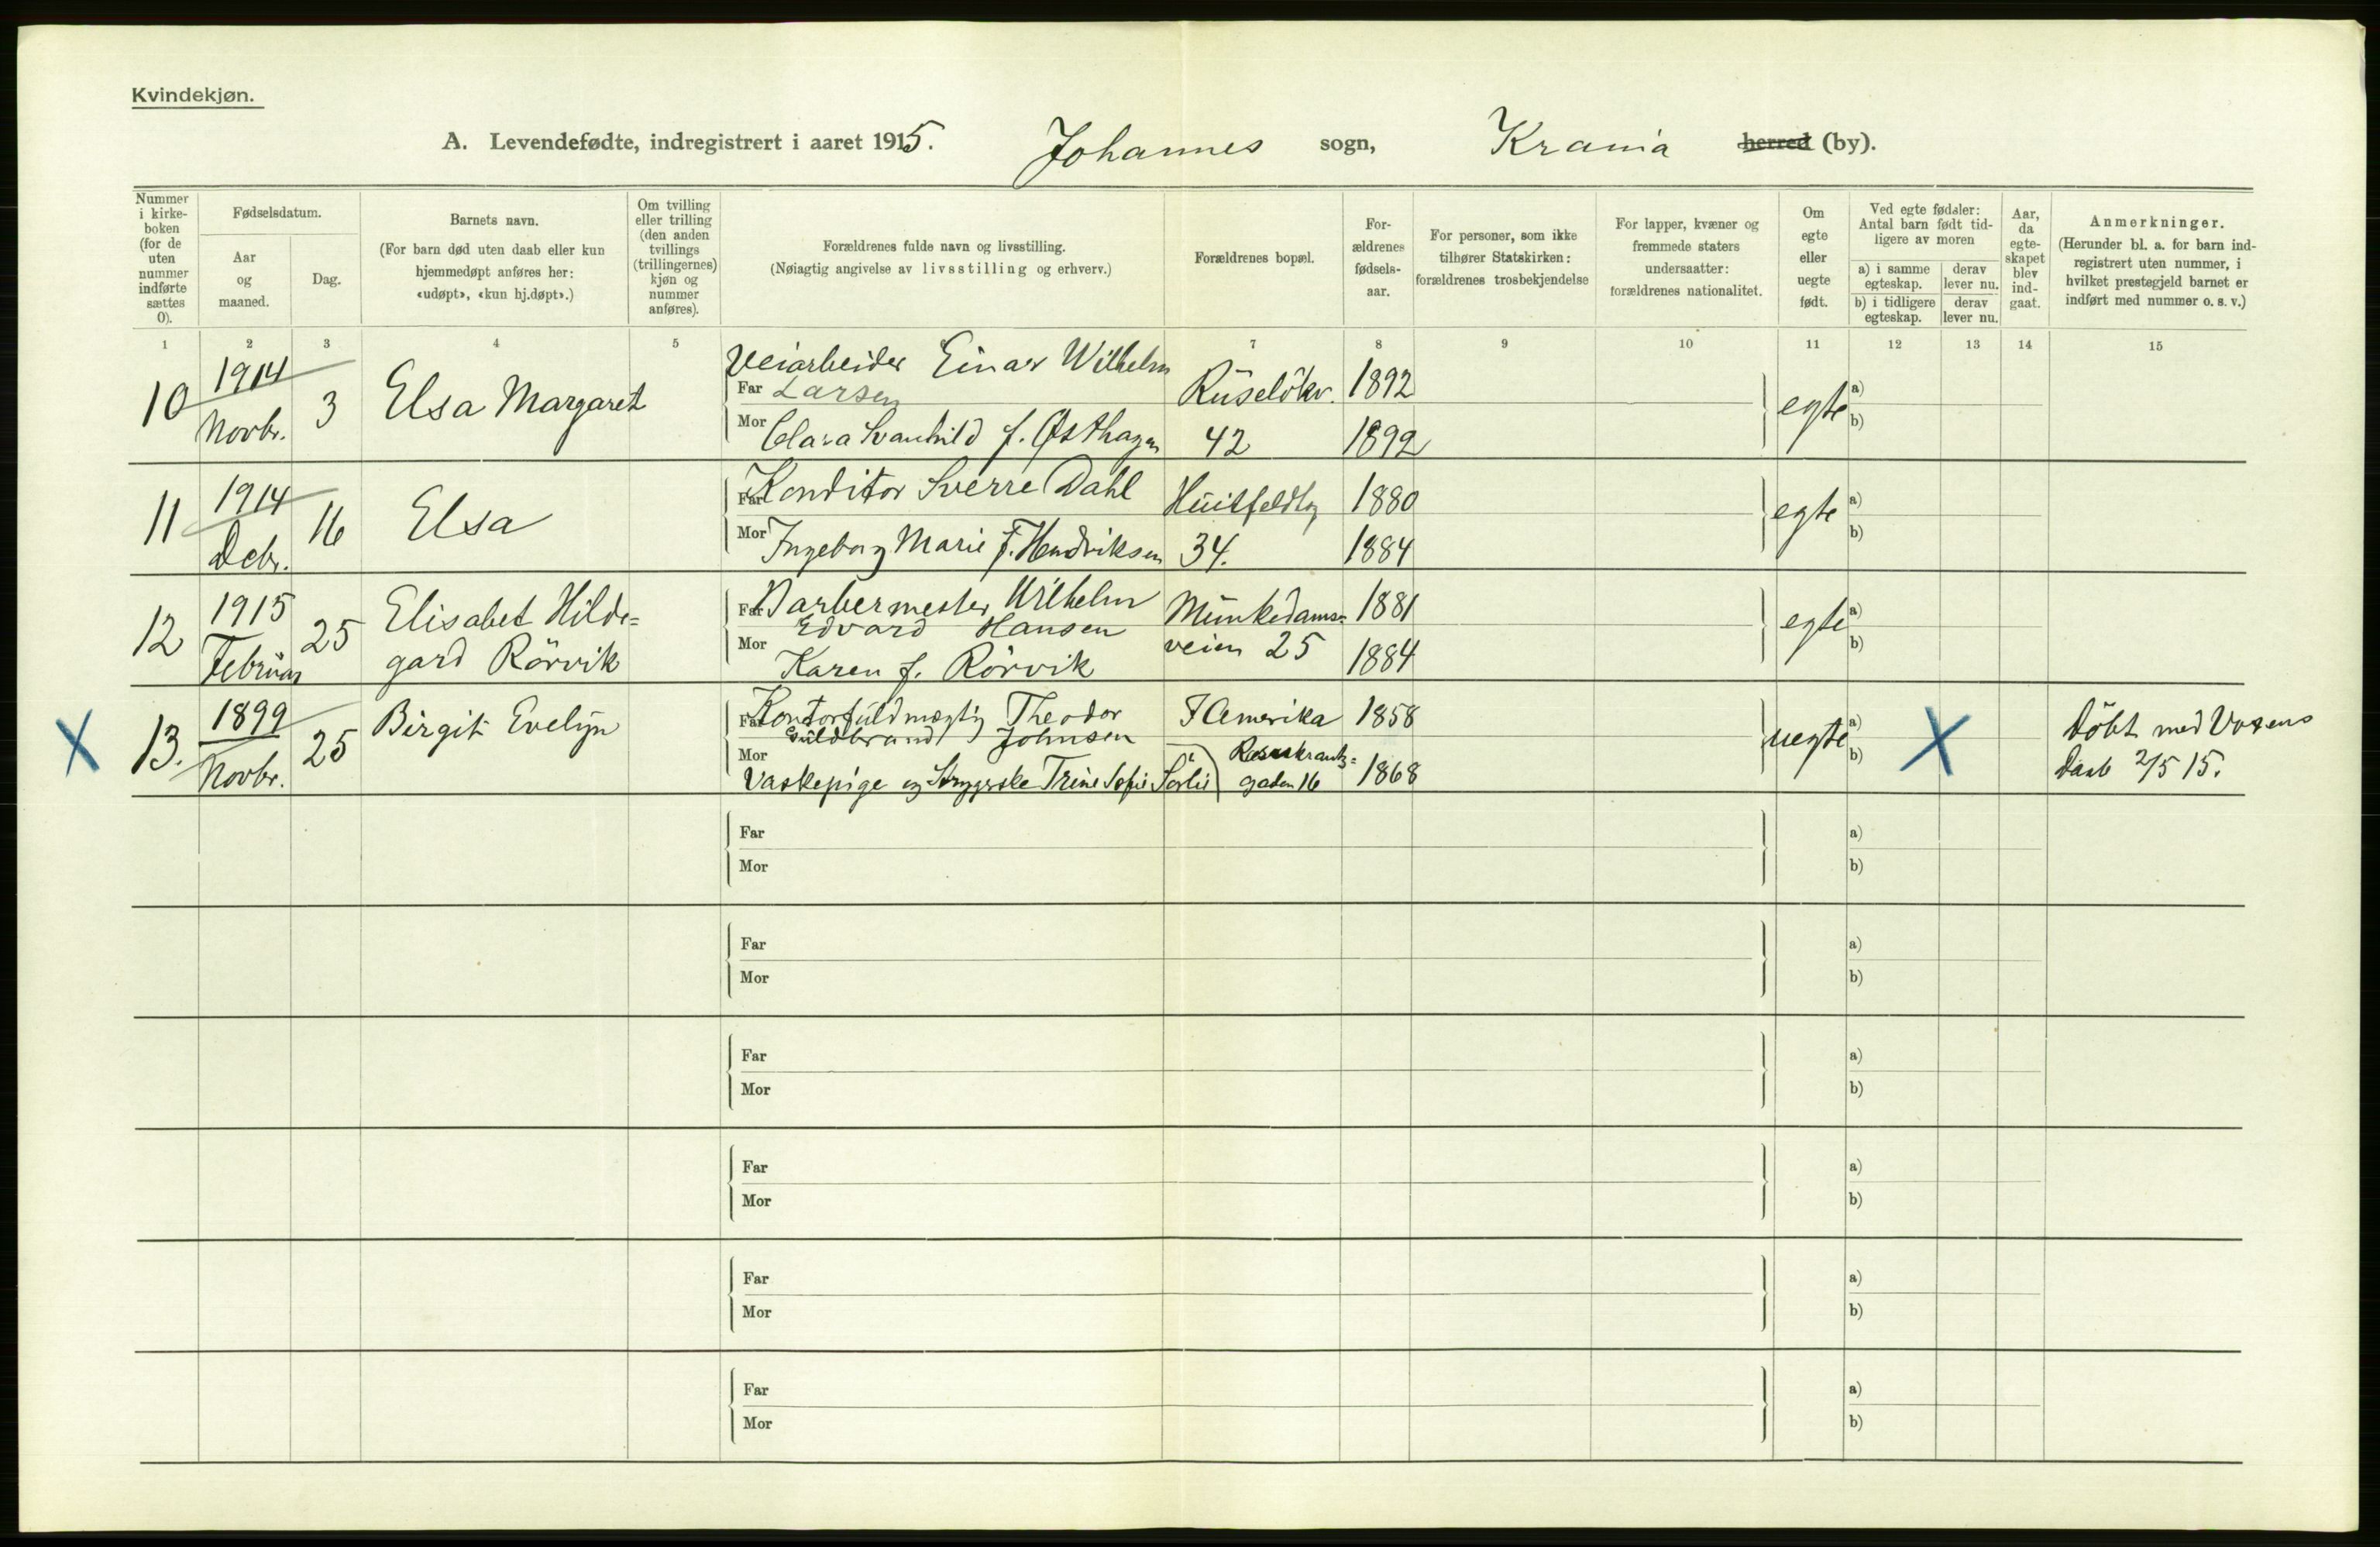 Kvindekjøn.
A. Levendefødte, indregistrert i aaret 1915. Johannes sogn, Krania herred (by).
Nummer i kirke- boken (for de uten nummer indførte sættes 0).
Fødselsdatum.
Aar og maaned.
Dag.
Barnets navn.
(For barn død uten daab eller kun hjemmedøpt anføres her: «udøpt», «kun hj.døpt».)
Om tvilling eller trilling (den anden tvillings (trillingernes) kjøn og nummer anføres).
Forældrenes fulde navn og livsstilling.
(Nøiagtig angivelse av livsstilling og erhverv.)
Forældrenes bopæl.
For- ældrenes fødsels- aar.
For personer, som ikke tilhører Statskirken: forældrenes trosbekjendelse
For lapper, kvæner og fremmede staters undersaatter: forældrenes nationalitet.
Om egte eller uegte født.
Ved egte fødsler: Antal barn født tid- ligere av moren
a) i samme egteskap.
derav lever nu.
b) i tidligere egteskap.
derav lever nu.
Aar, da egte- skapet blev ind- gaat.
Anmerkninger.
(Herunder bl. a. for barn ind- registrert uten nummer, i hvilket prestegjeld barnet er indført med nummer o. s. v.)
1 2 3 4 5 7 8 9 10 11 12 13 14 15
10 1914 Novbr. 3 Elsa Margaret
Veiarbeider Einar Wilhelm
Far Larsen
Mor Clara Svanhild f. Østhagen
Ruseløkv. 42
1892
1892
egte a) b)
11 1914 Debr. 16 Elsa
Far Konditor Sverre Dahl
Mor Ingeborg Marie f. Hendriksen
Huitfeldtsg 34.
1880
1884
egte a) b)
12 1915 Februar 25 Elisabet Hilde=
gard Rörvik
Far Barbermester Wilhelm
Edvard Hansen
Mor Karen f. Rörvik
Munkedams=
veien 25
1881
1884
egte a) b)
X 13. 1899 Novbr. 25 Birgit Evelyn
Far Kontorfuldmægtig Theodor
Guldbrand Johnsen
Mor
Vaskepige og Strygerske Trine Sofie Sörlie
I Amerika
Rosenkrantz=
gaden 16
1858
1868
uegte a) b) X
Döbt med Voxens
Daab 2/5 15.
Far
Mor
a)
b)
Far
Mor
a)
b)
Far
Mor
a)
b)
Far
Mor
a)
b)
Far
Mor
a)
b)
Far
Mor
a)
b)